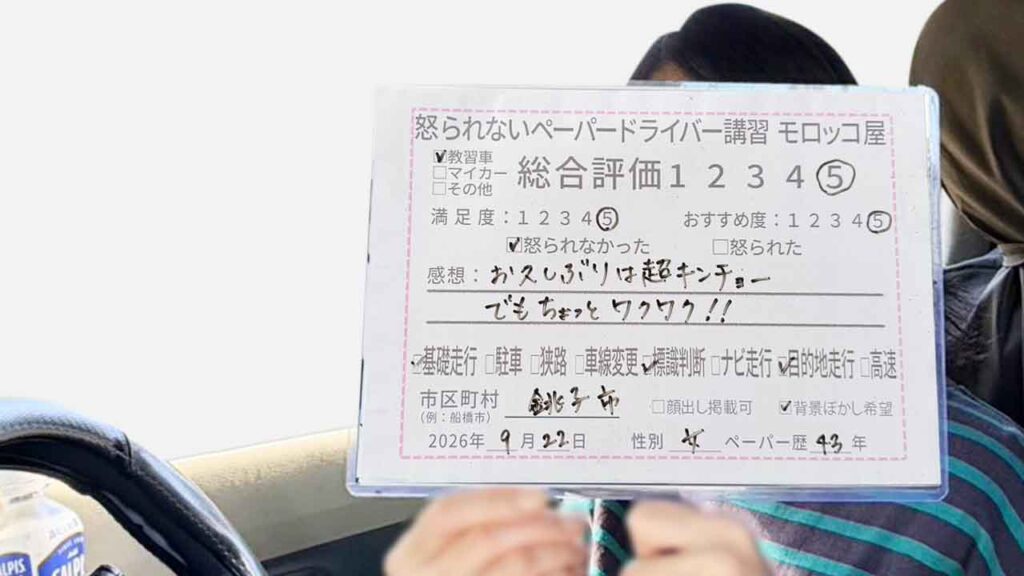 怒られないペーパードライバー講習 モロッコ屋
☑教習車
□マイカー
□その他
総合評価 1 2 3 4 ⑤
満足度：1 2 3 4 ⑤ おすすめ度：1 2 3 4 ⑤
☑怒られなかった □怒られた
感想：お久しぶりは超キンチョー
でもちょっとワクワク!!
☑基礎走行 □駐車 □狭路 □車線変更 ☑標識判断 □ナビ走行 ☑目的地走行 □高速
市区町村 銚子市 □顔出し掲載可 ☑背景ぼかし希望
(例：船橋市)
2026年 9月22日 性別 女 ペーパー歴 43年
CALPIS